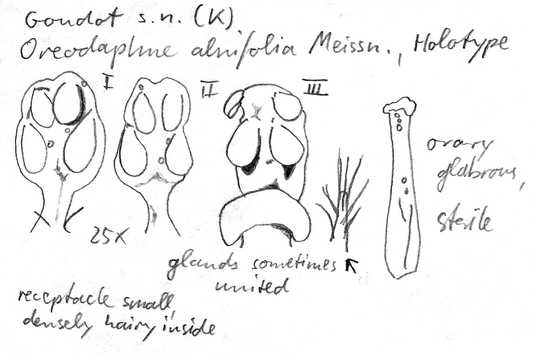 Goudot s.n. (K)
Oreodaphne alnifolia Meissn., Holotype
I II III
ovary
glabrous,
sterile
25x
glands sometimes
united
receptacle small,
densely hairy inside